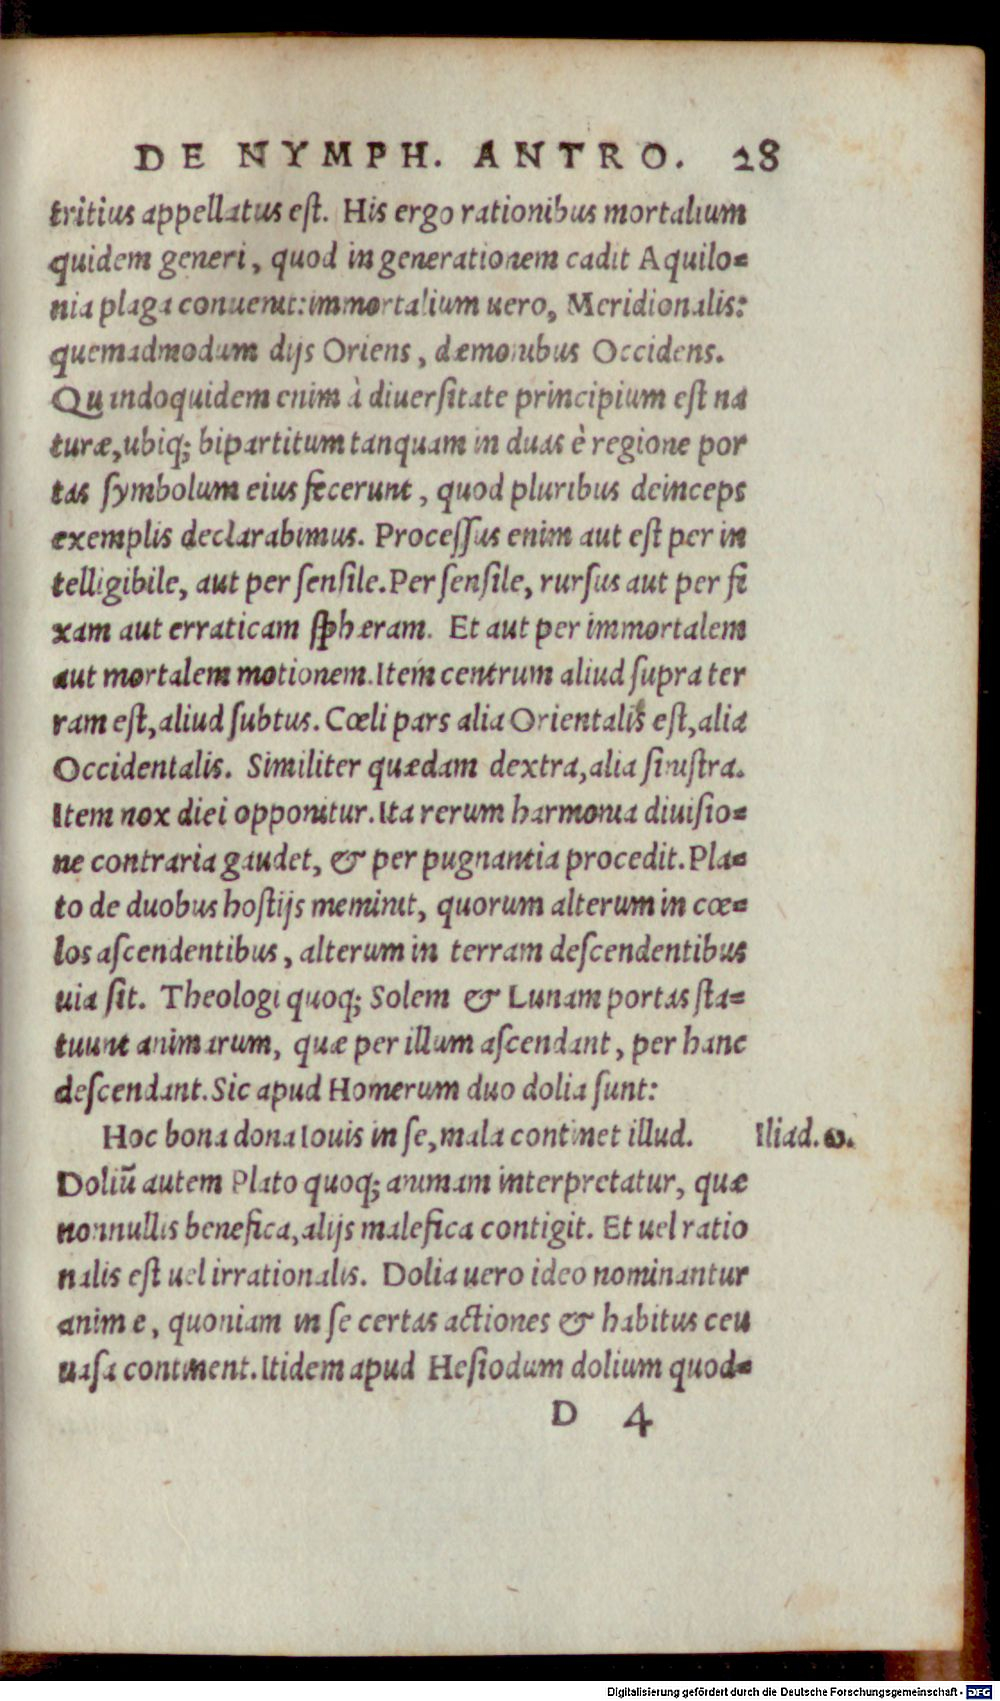 DE NYMPH. ANTRO. 28
tritius appellatus est. His ergo rationibus mortalium
quidem generi, quod in generationem cadit Aquilo=
nia plaga conuenit: immortalium uero, Meridionalis:
quemadmodum dijs Oriens, dæmonibus Occidens.
Quandoquidem enim à diuersitate principium est na
turæ, ubiq; bipartitum tanquam in duas è regione por
tas symbolum eius fecerunt, quod pluribus deinceps
exemplis declarabimus. Processus enim aut est per in
telligibile, aut per sensile. Per sensile, rursus aut per fi
xam aut erraticam sphæram. Et aut per immortalem
aut mortalem motionem. Item centrum aliud supra ter
ram est, aliud subtus. Cœli pars alia Orientalis est, alia
Occidentalis. Similiter quædam dextra, alia sinistra.
Item nox diei opponitur. Ita rerum harmonia diuisio=
ne contraria gaudet, & per pugnantia procedit. Pla=
to de duobus hostijs meminit, quorum alterum in cœ=
los ascendentibus, alterum in terram descendentibus
uia sit. Theologi quoq; Solem & Lunam portas sta=
tuunt animarum, quæ per illum ascendant, per hanc
descendant. Sic apud Homerum duo dolia sunt:
Hoc bona dona Iouis in se, mala continet illud. Iliad. ω.
Doliū autem Plato quoq; animam interpretatur, quæ
nonnullis benefica, alijs malefica contigit. Et uel ratio
nalis est uel irrationalis. Dolia uero ideo nominantur
animæ, quoniam in se certas actiones & habitus ceu
uasa continent. Itidem apud Hesiodum dolium quod=
D 4
Digitalisierung gefördert durch die Deutsche Forschungsgemeinschaft - DFG